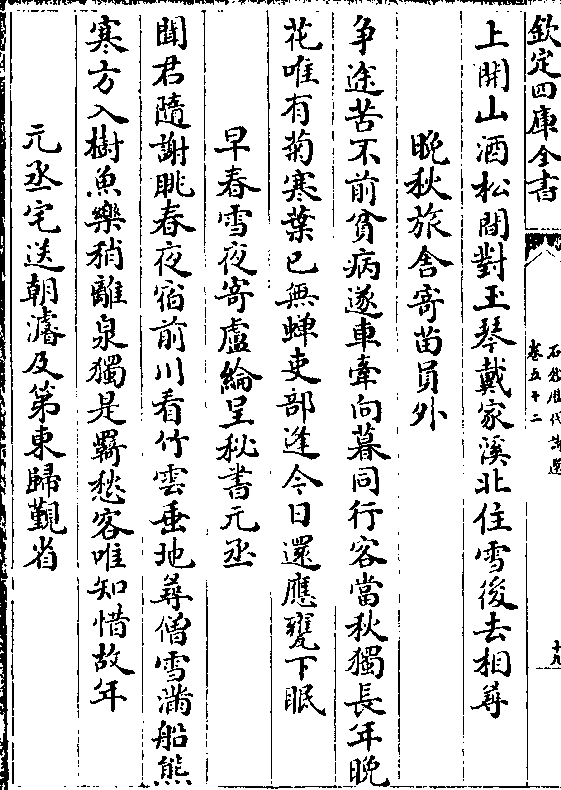 欽定四庫全書
石倉歷代詩選
卷五十二
十九
上開山酒松間對玉琴戴家溪北住雪後去相尋
晩秋旅舍寄苗員外
争途苦不前貧病遂車牽向暮同行客當秋獨長年晩
花唯有菊寒葉已無蟬吏部逢今日還應甕下眠
早春雪夜寄盧綸呈秘書元丞
聞君隨謝朓春夜宿前川看竹雲垂地尋僧雪滿船熊
寒方入樹魚樂稍離泉獨是羇愁客唯知惜故年
元丞宅送朝濬及第東歸覲省